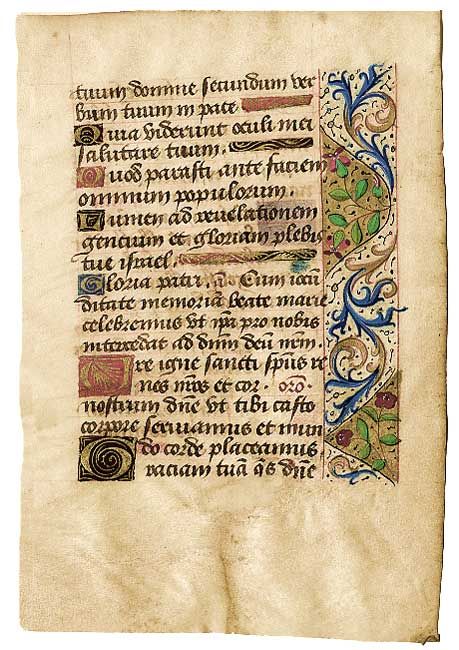 tuum domine secundum ver
bum tuum in pace
Quia viderunt oculi mei
salutare tuum.
Quod parasti ante faciem
omnium populorum.
Lumen ad revelationem
gentium et gloriam plebis
tue israel.
Gloria patri. añ Cum iocũ
ditate memoriã beate marie
celebremus vt ip̃a pro nobis
intercedat ad dñm deũ nem̃.
Vre igne sancti sp̃us re
nes nr̃os et cor · oro ·
nostrum dñe vt tibi casto
corpore serviamus et mun
do corde placeamus
Graciam tuã q̃s dñe